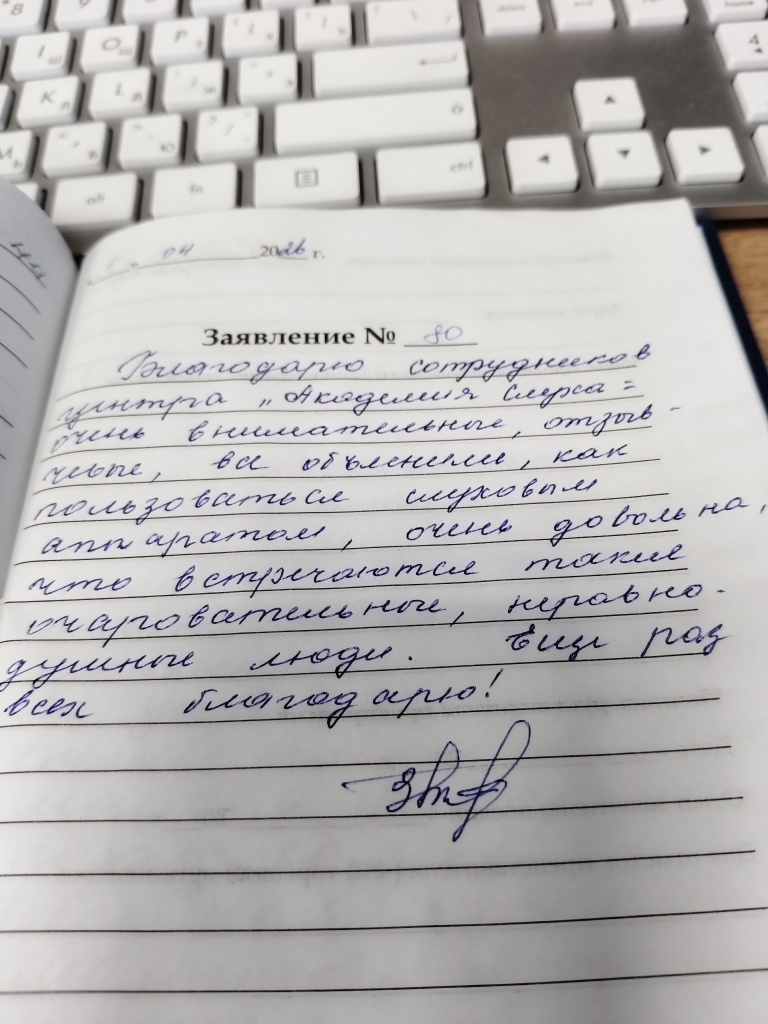 04 2026 г.
Заявление № 80
Благодарю сотрудников
центра „Академия слуха =
очень внимательные, отзыв-
чивые, все объяснили, как
пользоваться слуховым
аппаратом, очень довольна,
что встречаются такие
очаровательные, неравно-
душные люди. Еще раз
всех благодарю!